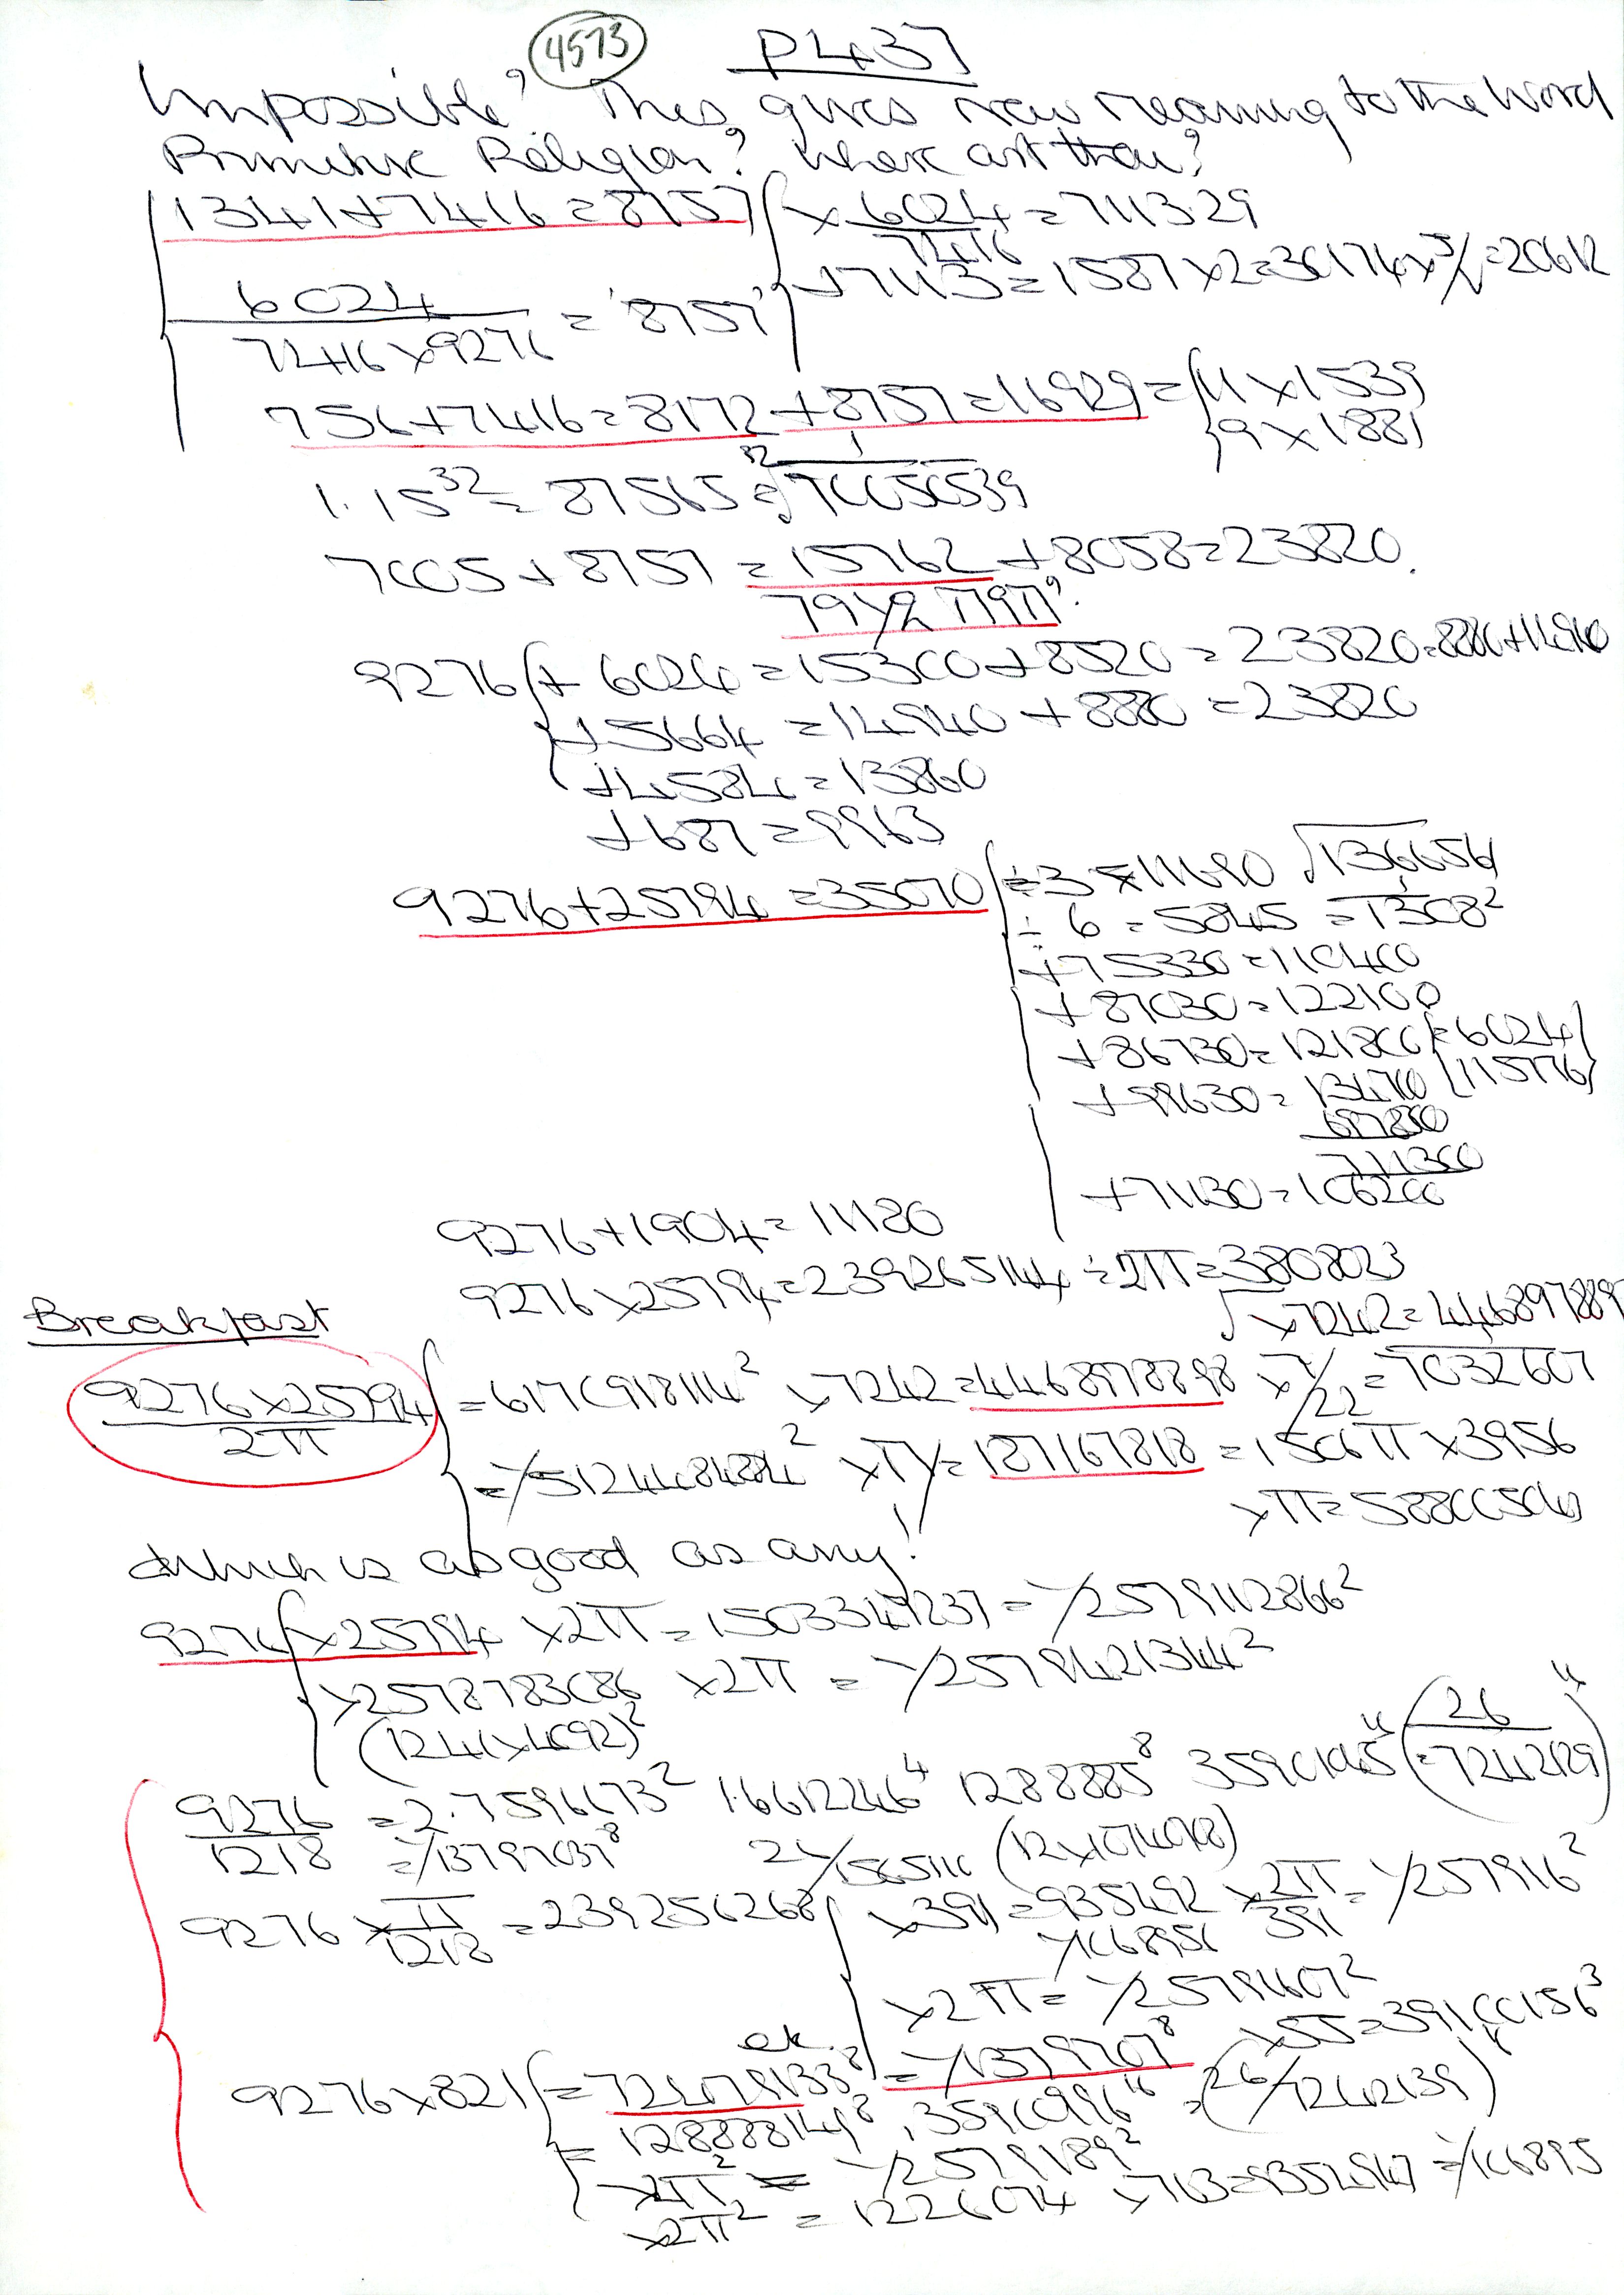 4573 P437
Impossible? This, gives new meaning to the word
Primitive Religion? Where art thou?
1341+7416=8757 × 6024/7416 = 711329
6024/7416×9276 = '8757' +7113=1587×2=30174×
756+7416=8172+8757=16929= 11×1539
9×1881
1.15³²= 87565 = 70050539
7005+8757=15762+8058=23820.
9276 + 6024=15300+8520=23820=8880+14940
+5664=14940+8880=23820
+4584=13860
+687=9963
9276+25794=35070 ÷3=11690 √136654
÷6=5845
+75330=110400
+87030=122100
+86730=121800 =6024
115776
+99630=134700
697830
711300
+71130=106200
9276+1904=11180
9276×25794=239265144÷2π=3808023
Breakfast √×7242=446897889
9276×25794/2π =6170918114² ×7242=4468978898 ×7/22=
×π = 187167818 =1506π×3956
×π=588006504
Which is as good as any!
9276×25794 ×2π=1503349237=1/2579112866²
×2578783086 ×2π = 1/2579421344²
(1241×4692)²
9276/1218 =2.7596673² 1.6612246⁴ 1288885⁸ 35901045 (26/=7242129)
=1/13797037⁸ (12×1074098)
9276×π/1218=239256268 ×391=935492×2π/391=1/257916²
×1068956
×2π=1/25791607²
ek
9276×821 =72479133⁸ =1/1379707⁸ ×55=39100156³
=12888814⁸ 35900996¹⁶ =(26/7242139)
×2π² = 1/25791189²
×2π² = 1226074 ×763=9352947=1/106895